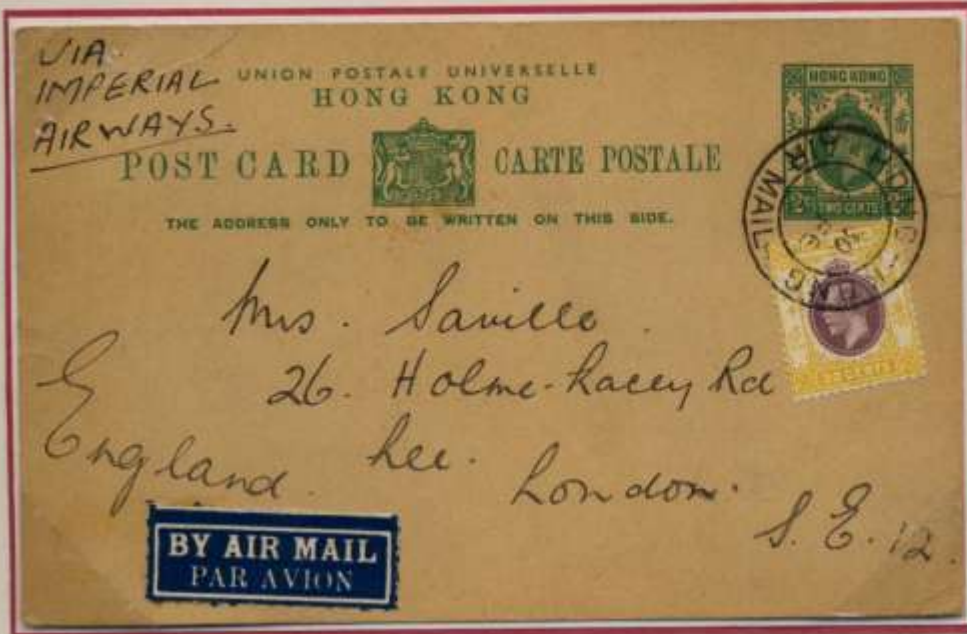 VIA
IMPERIAL
AIRWAYS.
UNION POSTALE UNIVERSELLE
HONG KONG
POST CARD CARTE POSTALE
THE ADDRESS ONLY TO BE WRITTEN ON THIS SIDE.
HONG KONG
2 TWO CENTS
AIR MAIL
CENTS
Mrs. Saville.
26. Holme-Lacey Rd
Lee.
London.
S.E.12.
England.
BY AIR MAIL
PAR AVION